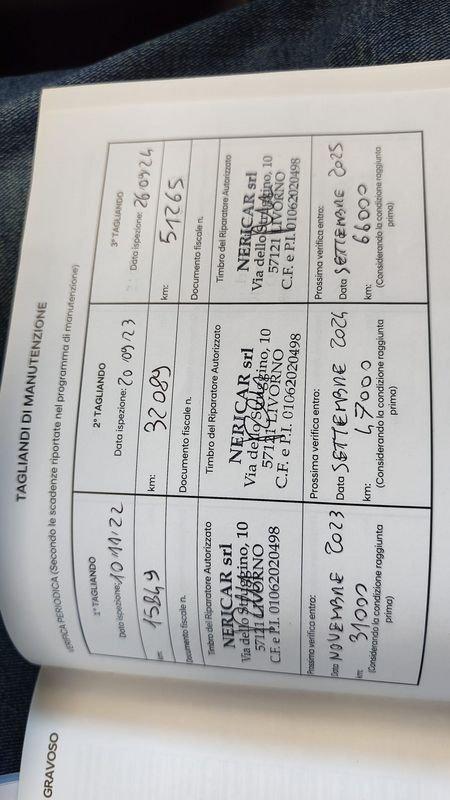 GRAVOSO
TAGLIANDI DI MANUTENZIONE
VERIFICA PERIODICA (Secondo le scadenze riportate nel programma di manutenzione)
1° TAGLIANDO
Data ispezione: 10 11 22
km:
15849
Documento fiscale n.
Timbro del Riparatore Autorizzato
NERICAR srl
Via dello Struggino, 10
57121 LIVORNO
C.F. e P.I. 01062020498
Prossima verifica entro:
Data NOVEMBRE 2023
km: 31000
(Considerando la condizione raggiunta
prima)
2° TAGLIANDO
Data ispezione: 20 09 23
km: 32089
Documento fiscale n.
Timbro del Riparatore Autorizzato
NERICAR srl
Via dello Struggino, 10
57121 LIVORNO
C.F. e P.I. 01062020498
Prossima verifica entro:
Data SETTEMBRE 2024
km: 47000
(Considerando la condizione raggiunta
prima)
3° TAGLIANDO
Data ispezione: 26 09 24
km: 51265
Documento fiscale n.
Timbro del Riparatore Autorizzato
NERICAR srl
Via dello Struggino, 10
57121 LIVORNO
C.F. e P.I. 01062020498
Prossima verifica entro:
Data SETTEMBRE 2025
km: 66000
(Considerando la condizione raggiunta
prima)